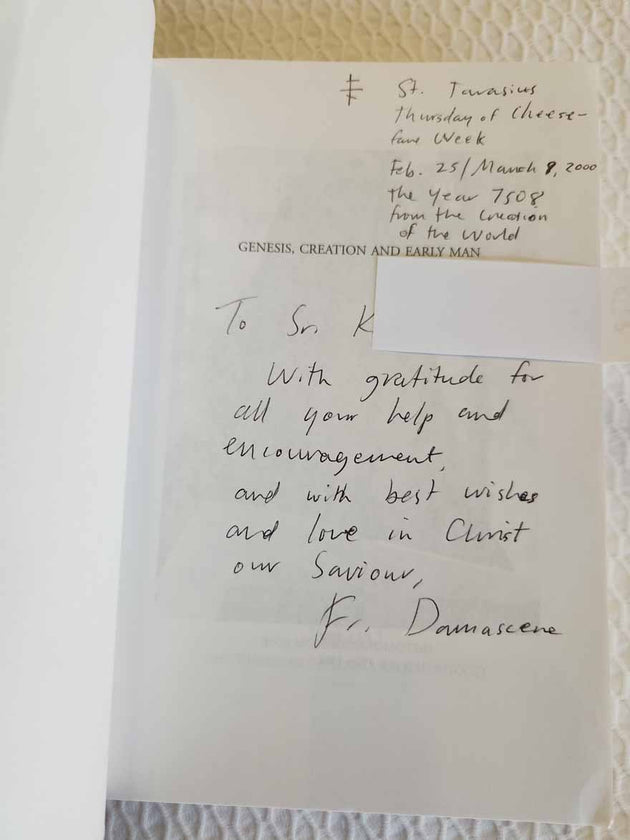 St. Tarasius
Thursday of Cheese-
fare Week
Feb. 25/March 8, 2000
the Year 7508
from the Creation
of the World
GENESIS, CREATION AND EARLY MAN
To Sr. K
With gratitude for
all your help and
encouragement,
and with best wishes
and love in Christ
our Saviour,
Fr. Damascene